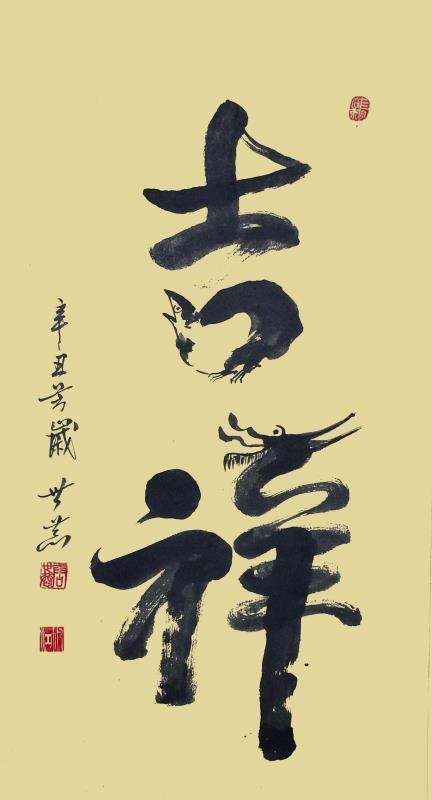 吉祥
辛丑芳歲 世